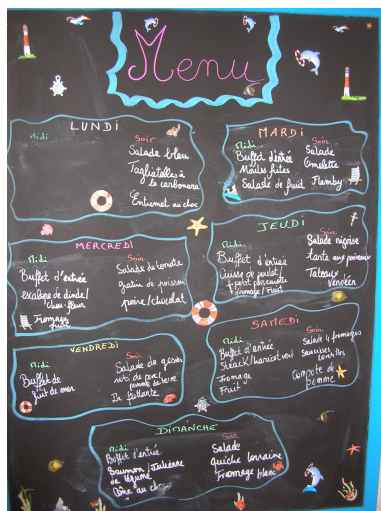 Menu
LUNDI
Midi
Soir
Salade bleu
Tagliatelles à
la carbonara
Entremet au choc
MARDI
Midi
Buffet d'entrée
Moules frites
Salade de fruit
Soir
Salade
Omelette
Flamby
MERCREDI
Midi
Buffet d'entrée
escalope de dinde/
chou-fleur
Fromage
fruit
Soir
Salade de tomate
gratin de poisson
poire/chocolat
JEUDI
Midi
Buffet d'entrée
Cuisse de poulet/
petit pois carotte
fromage/Fruit
Soir
Salade niçoise
tarte aux poireaux
Vendéen
VENDREDI
Midi
Buffet de
fruit de mer
Soir
Salade de gésier
roti de porc/
pomme de terre
Ile flottante
SAMEDI
Midi
Buffet d'entrée
Steack/haricot vert
Fromage
Fruit
Soir
Salade 4 fromages
Saucisses
lentilles
Compote de
pomme
DIMANCHE
Midi
Buffet d'entrée
Saumon/Julienne
de légume
au
Soir
Salade
quiche lorraine
Fromage blanc